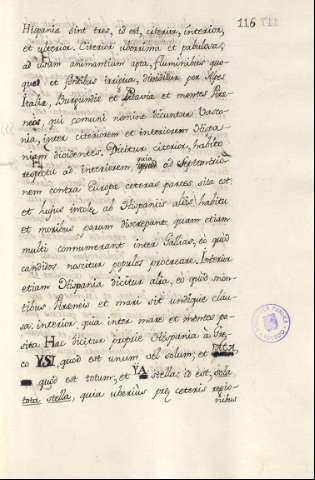 116
Hispaniæ sint tres, id est, citerior, interior,
et ulterior. Citerior uberrima et pabulosa,
ad usum animantium apta, fluminibus quo-
que et fontibus irrigua, dividitur per Alpes
Italiæ, Burgundiæ et Bavia et montes Pire-
neos, qui communi nomine dicuntur Vasco-
nia, inter citeriorem et interiorem Hispa-
niam dividentes. Dicitur citerior, habito
respectu ad interiorem, quia ad Septentrio-
nem contra Europæ ceteras partes sita est
et hujus incolæ ab Hispanicis aliis habitu
et moribus earum discrepant, quam etiam
multi connumerant inter Gallias, eò quòd
candidos noscitur populos procreare. Interior
etiam Hispania dicitur alia, eò quòd mon-
tibus Pireneis et mari sit undique clau-
sa: interior, quia inter mare et montes po-
sita. Hæc dicitur propriè Hispania à Græ-
co YSI, quod est unum vel solum; et
quòd est totum, et YA stella: id est, sola
tota stella, quia uberius præ ceteris regio-
nibus